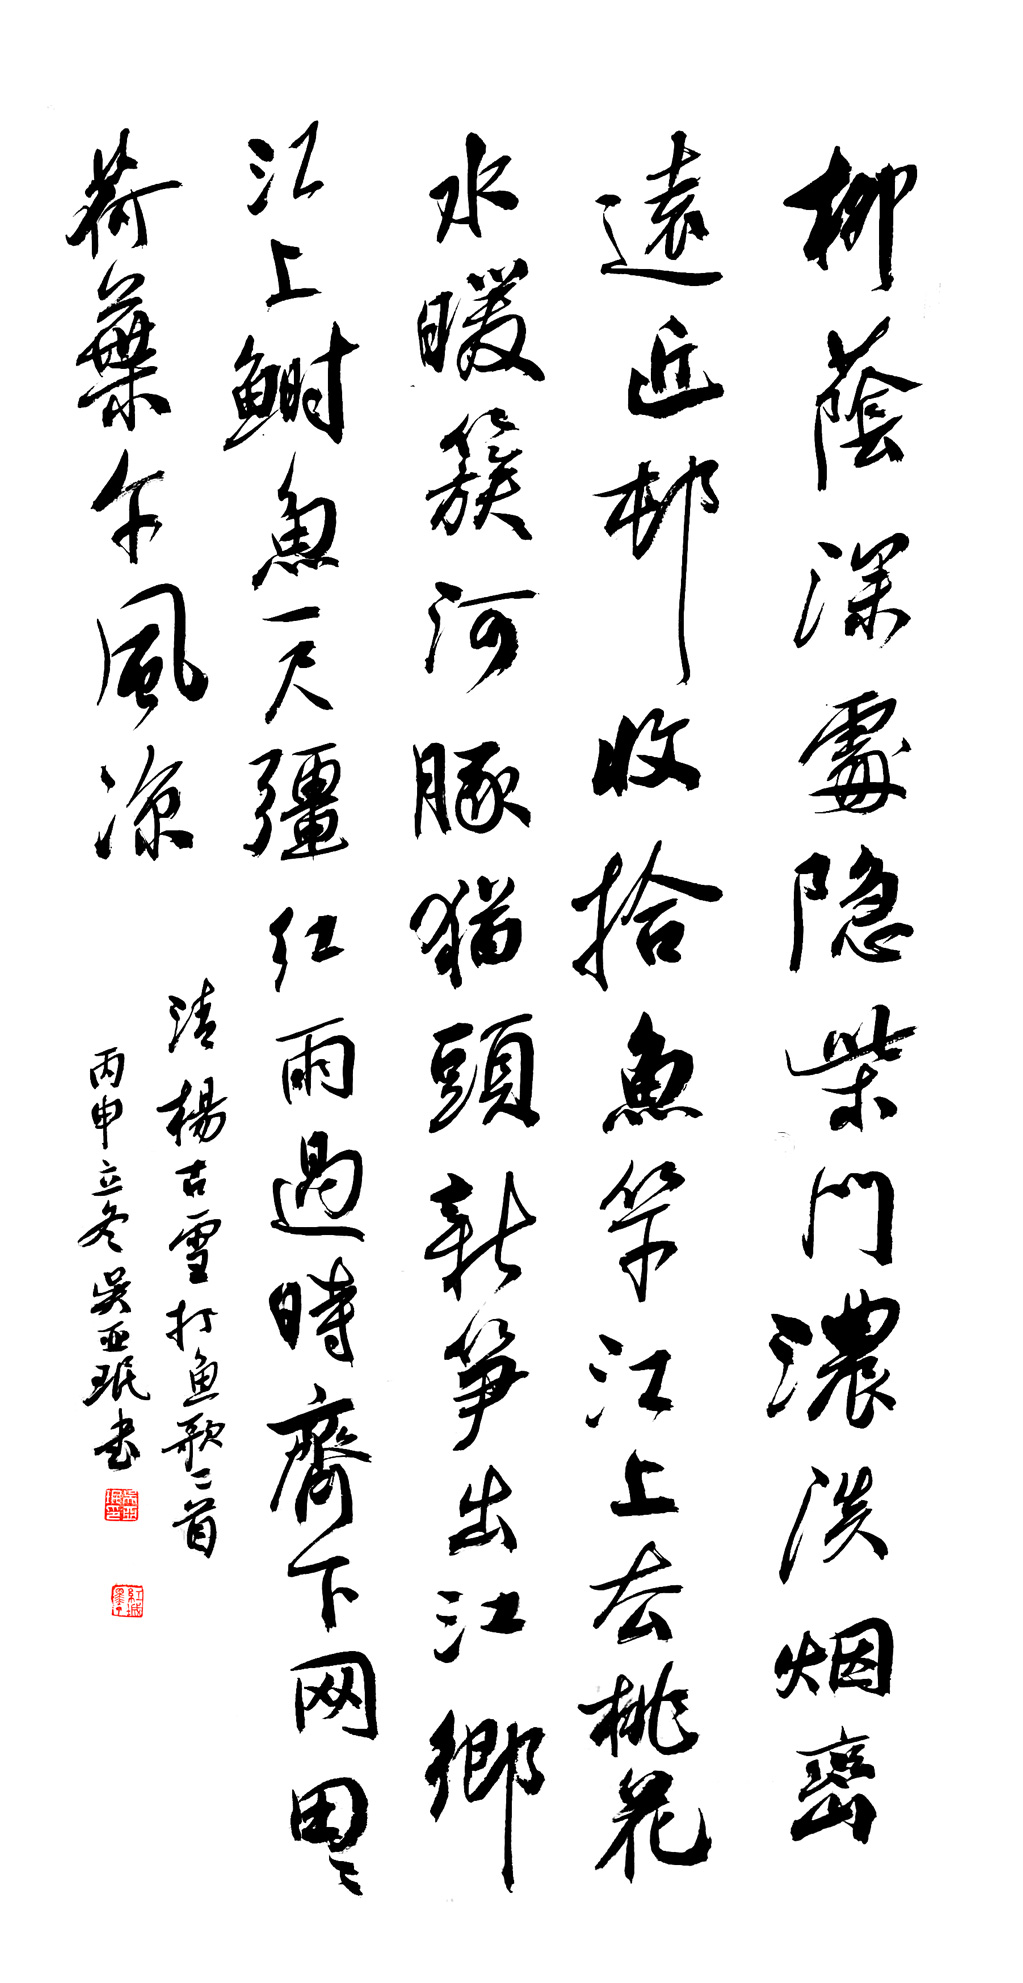 柳蔭深處隐柴門濃淡烟峦
遠近邨收拾魚竿江上去桃花
水暖簇河豚猫頭新笋出江鄉
江上鰣魚一尺彊红雨過時齊下网田〻
荷葉午風凉
清楊古雪打魚歌二首
丙申立冬吴亚珉书